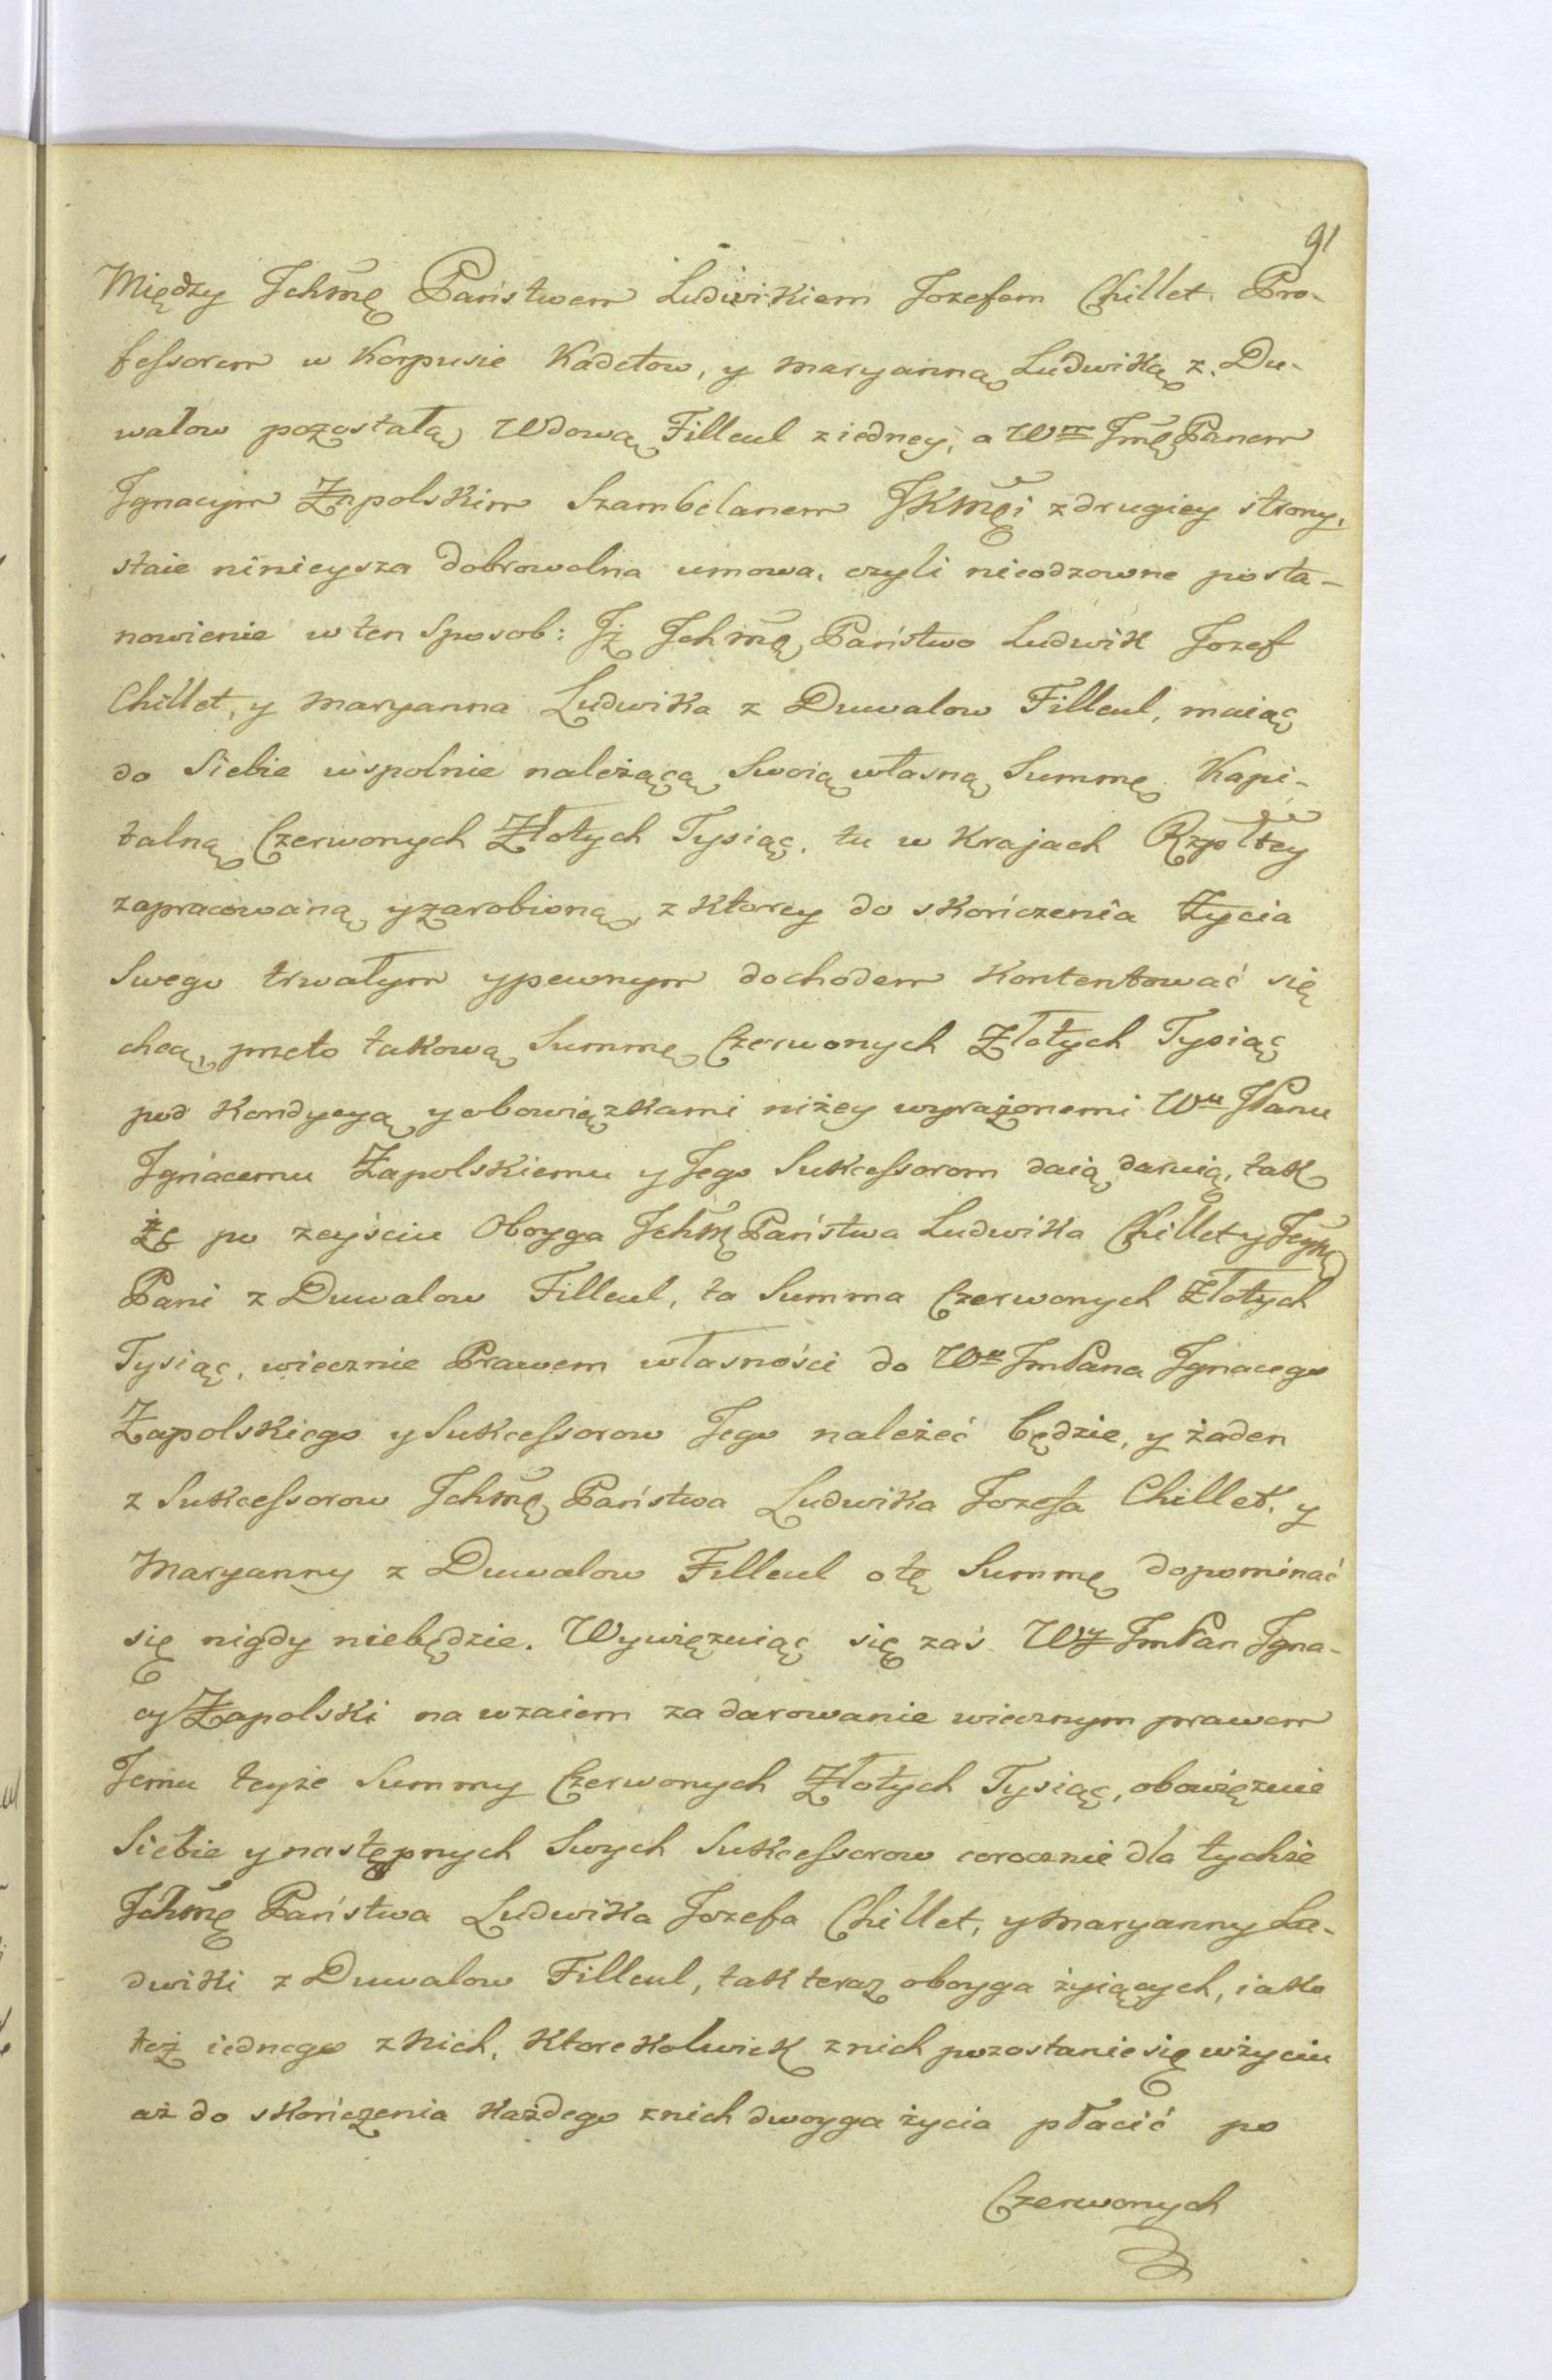 91
Między Ichmę Państwem Ludwikiem Jozefem Chillet Pro-
fessorem w Korpusie Kadetow, y Maryanną Ludwiką z Du-
walow pozostałą Wdową Filleul z iedney, a Wm Jmę Panem
Jgnacym Zapolskim Szambelanem JKMęi z drugiey strony,
staie ninieysza dobrowolna umowa, czyli nieodzowne posta-
nowienie w ten Sposob: Jż Jchmę Państwo Ludwik Jozef
Chillet, y Maryanna Ludwika z Duwalow Filleul, maiąc
do Siebie wspolnie należącą Swoią własną Summę Kapi-
talną Czerwonych Złotych Tysiąc, tu w Krajach Rzpltey
zapracowaną y zarobioną, z ktorey do skończenia Życia
Swego trwałym y pewnym dochodem Kontentować się
chcą, przeto takową Summę Czerwonych Złotych Tysiąc
pod Kondycyą y obowiązkami niżey wyrażonemi Wu JPanu
Jgnacemu Zapolskiemu y Jego Sukcessorom daią daruią, tak
że po zeyściu Oboyga Jchmę Państwa Ludwika Chillet y Jeymę
Pani z Duwalow Filleul, ta Summa Czerwonych Złotych
Tysiąc, wiecznie Prawem własności do Wo JmPana Jgnacego
Zapolskiego y Sukcessorow Jego należeć będzie, y żaden
z Sukcessorow Jchmę Państwa Ludwika Jozefa Chillet, y
Maryanny z Duwalow Filleul o tę Summę dopominać
się nigdy niebędzie. Wywięzuiąc się zaś Wy JmPan Jgna-
cy Zapolski na wzaiem za darowanie wiecznym prawem
Jemu teyże Summy Czerwonych Złotych Tysiąc, obowięzuie
Siebie y następnych Swych Sukcessorow corocznie dla tychże
Jchmę Państwa Ludwika Jozefa Chillet, y Maryanny Lu-
dwiki z Duwalow Filleul, tak teraz oboyga żyiących, iako
też iednego z Nich, Ktorekolwiek z nich pozostanie się w życiu
aż do skończenia Każdego z nich dwoyga życia płacić po
Czerwonych